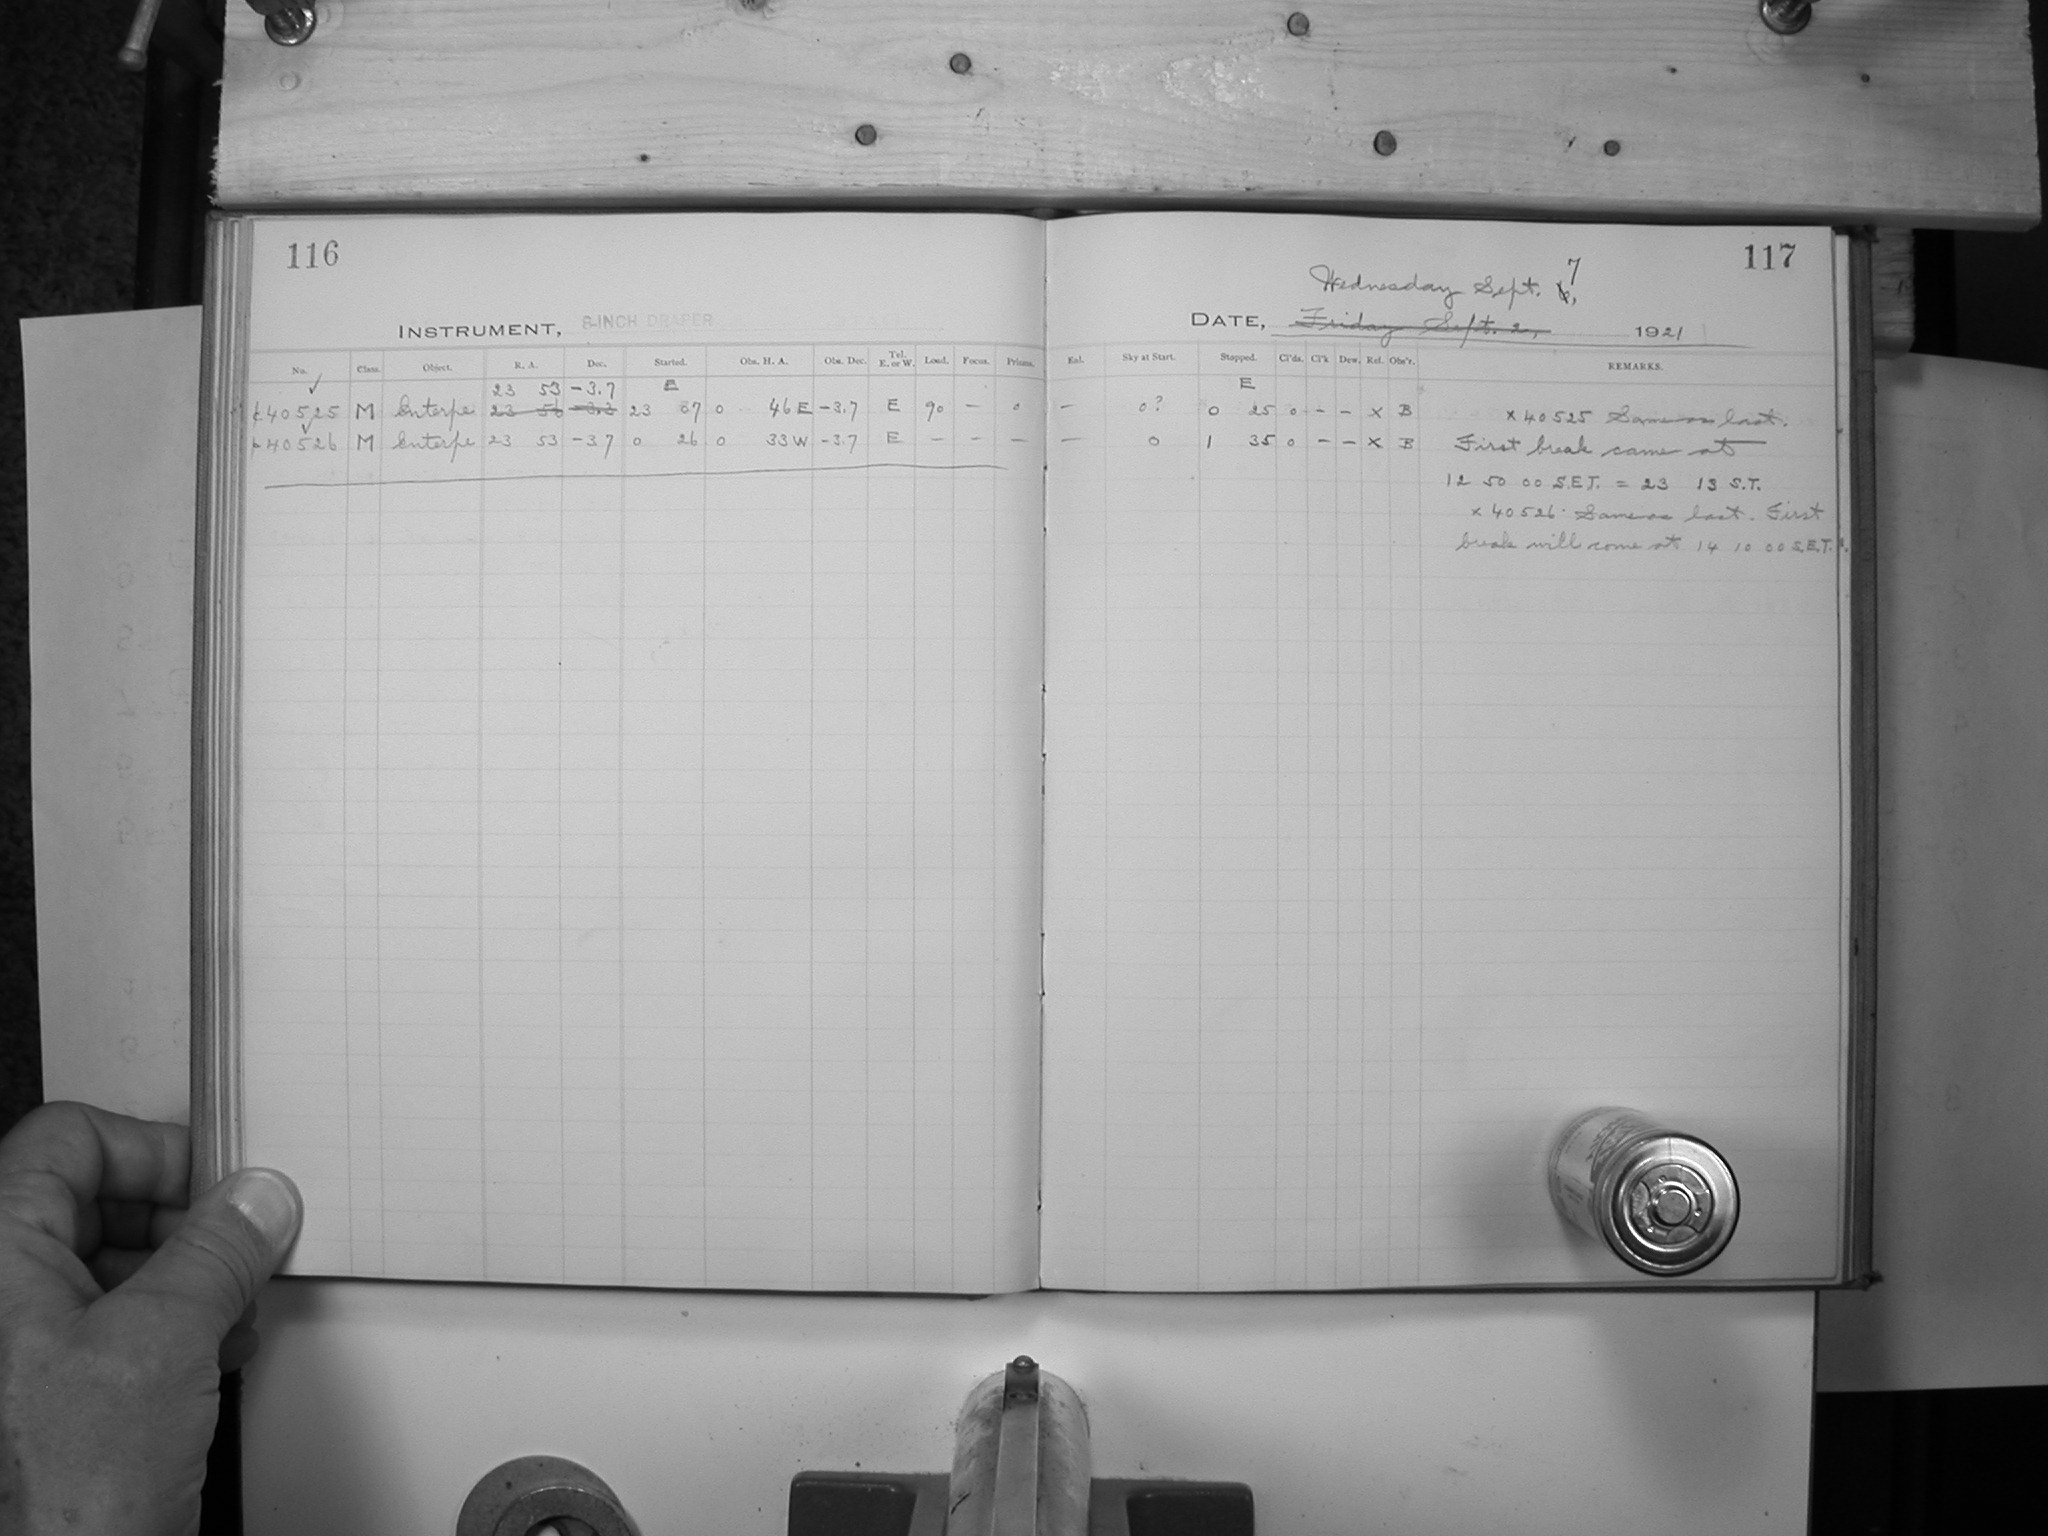 116
INSTRUMENT, 8-INCH DRAPER
No. Class. Object. R. A. Dec. Started. Obs. H. A. Obs. Dec. Tel. E. or W. Load. Focus. Prisms.
23 53 -3.7 E
40525 M 23 56 -3.3 23 07 0 46 E -3.7 E 90 - 0
40526 M 23 53 -3.7 0 26 0 33 W -3.7 E - - -
117
Wednesday Sept. 6, 7
DATE, Friday Sept. 2, 1921
Enl. Sky at Start. Stopped. Cl'ds. Cl'k Dew. Ref. Obs'r. REMARKS.
E
- 0? 0 25 0 - - X B x 40525 Same as last.
- 0 1 35 0 - - X B First break came at
12 50 00 S.E.T. = 23 13 S.T.
x 40526. Same as last. First
break will come at 14 10 00 S.E.T.